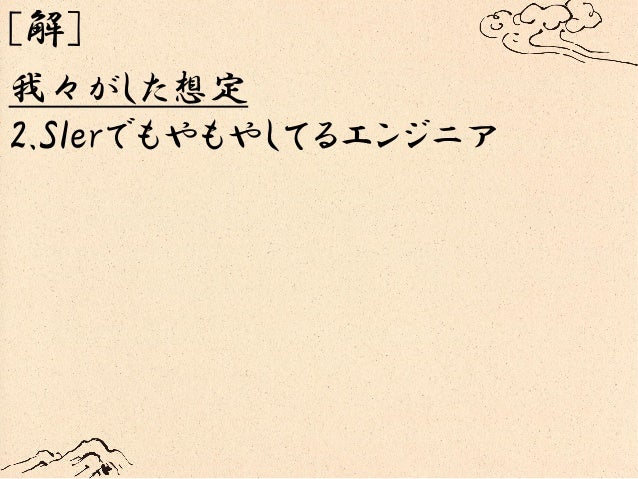 [解]
我々がした想定
2.SIerでもやもやしてるエンジニア